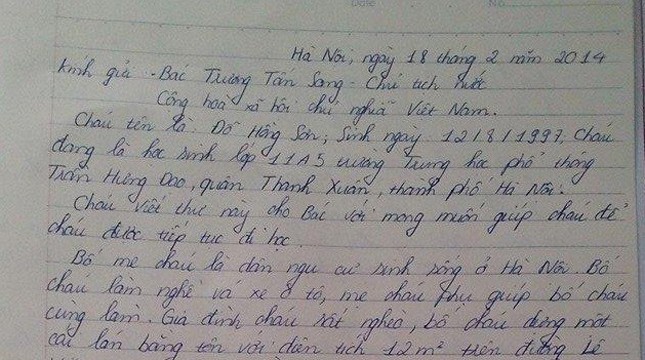 Date No.
Hà Nội, ngày 18 tháng 2 năm 2014
Kính gửi - Bác Trương Tấn Sang - Chủ tịch nước
Cộng hoà xã hội chủ nghĩa Việt Nam.
Cháu tên là Đỗ Hồng Sơn, Sinh ngày 12/8/1997. Cháu
đang là học sinh lớp 11A5 trường Trung học phổ thông
Trần Hưng Đạo, quận Thanh Xuân, thành phố Hà Nội.
Cháu viết thư này cho Bác với mong muốn giúp cháu để
cháu được tiếp tục đi học.
Bố mẹ cháu là dân ngụ cư sinh sống ở Hà Nội. Bố
cháu làm nghề vá xe ô tô, mẹ cháu phụ giúp bố cháu
cùng làm. Gia đình cháu rất nghèo, bố cháu dựng một
cái lán bằng tôn với diện tích 12m² trên đường Lê